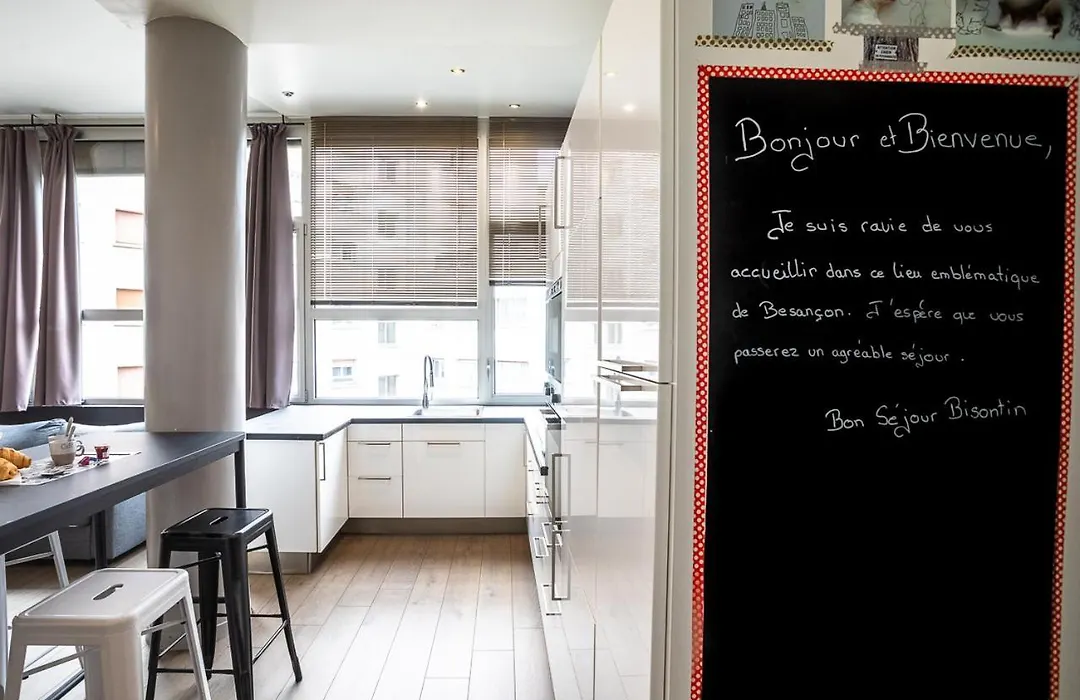 ATTENTION
CHIEN
Bonjour et Bienvenue,
Je suis ravie de vous
accueillir dans ce lieu emblématique
de Besançon. J'espère que vous
passerez un agréable séjour.
Bon Séjour Bisontin